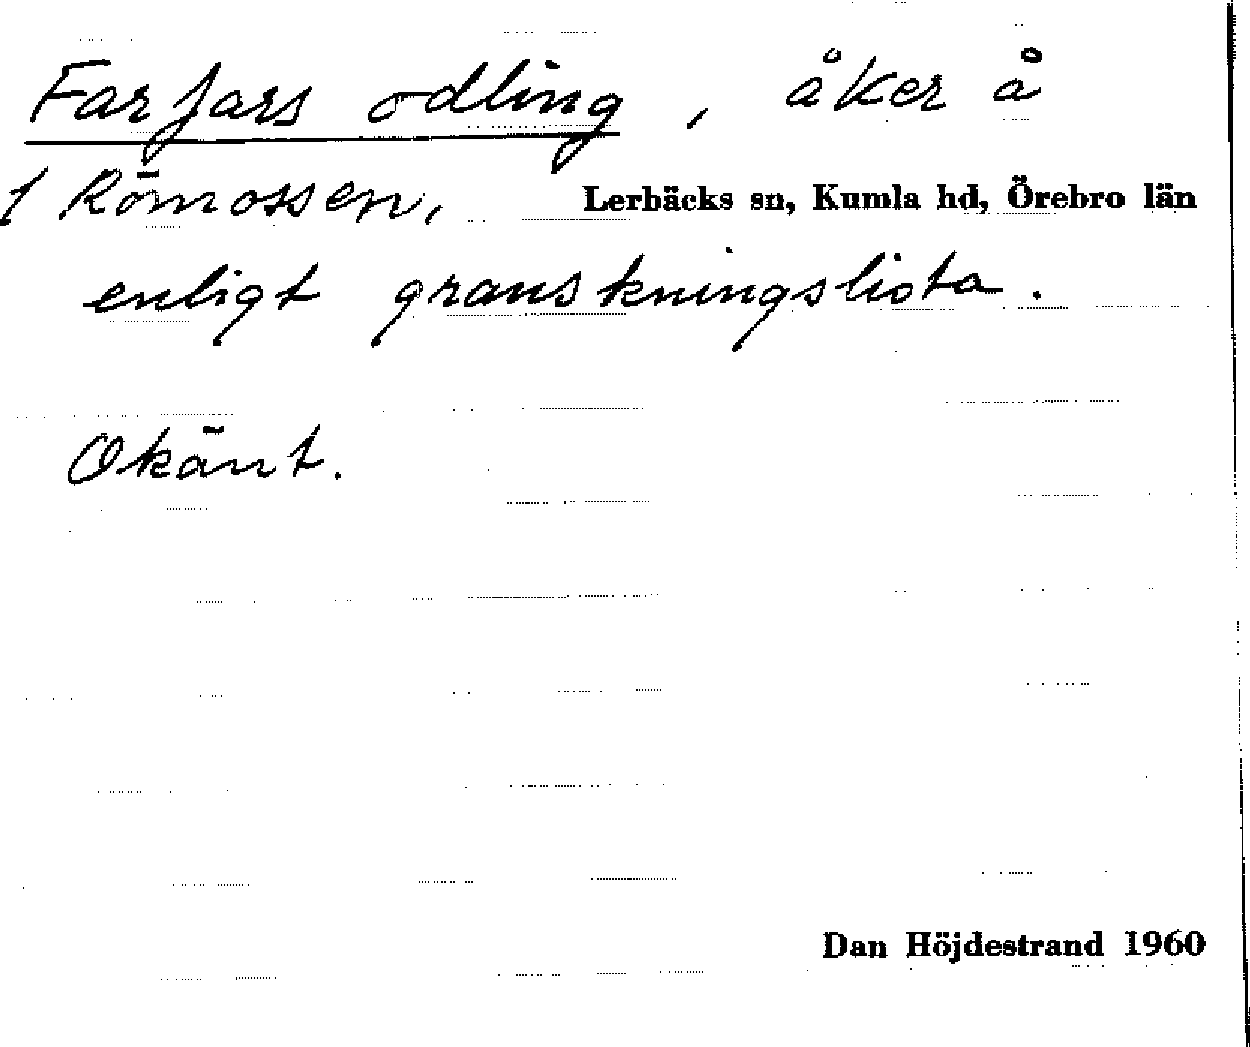 Farfars odling, åker å
1 Römossen, Lerbäcks sn, Kumla hd, Örebro län
enligt granskningslista.
Okänt.
Dan Höjdestrand 1960